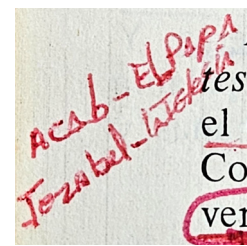 ACAb-El PAPA
Jezabel-La Iglesia
tes
el
Co
ver